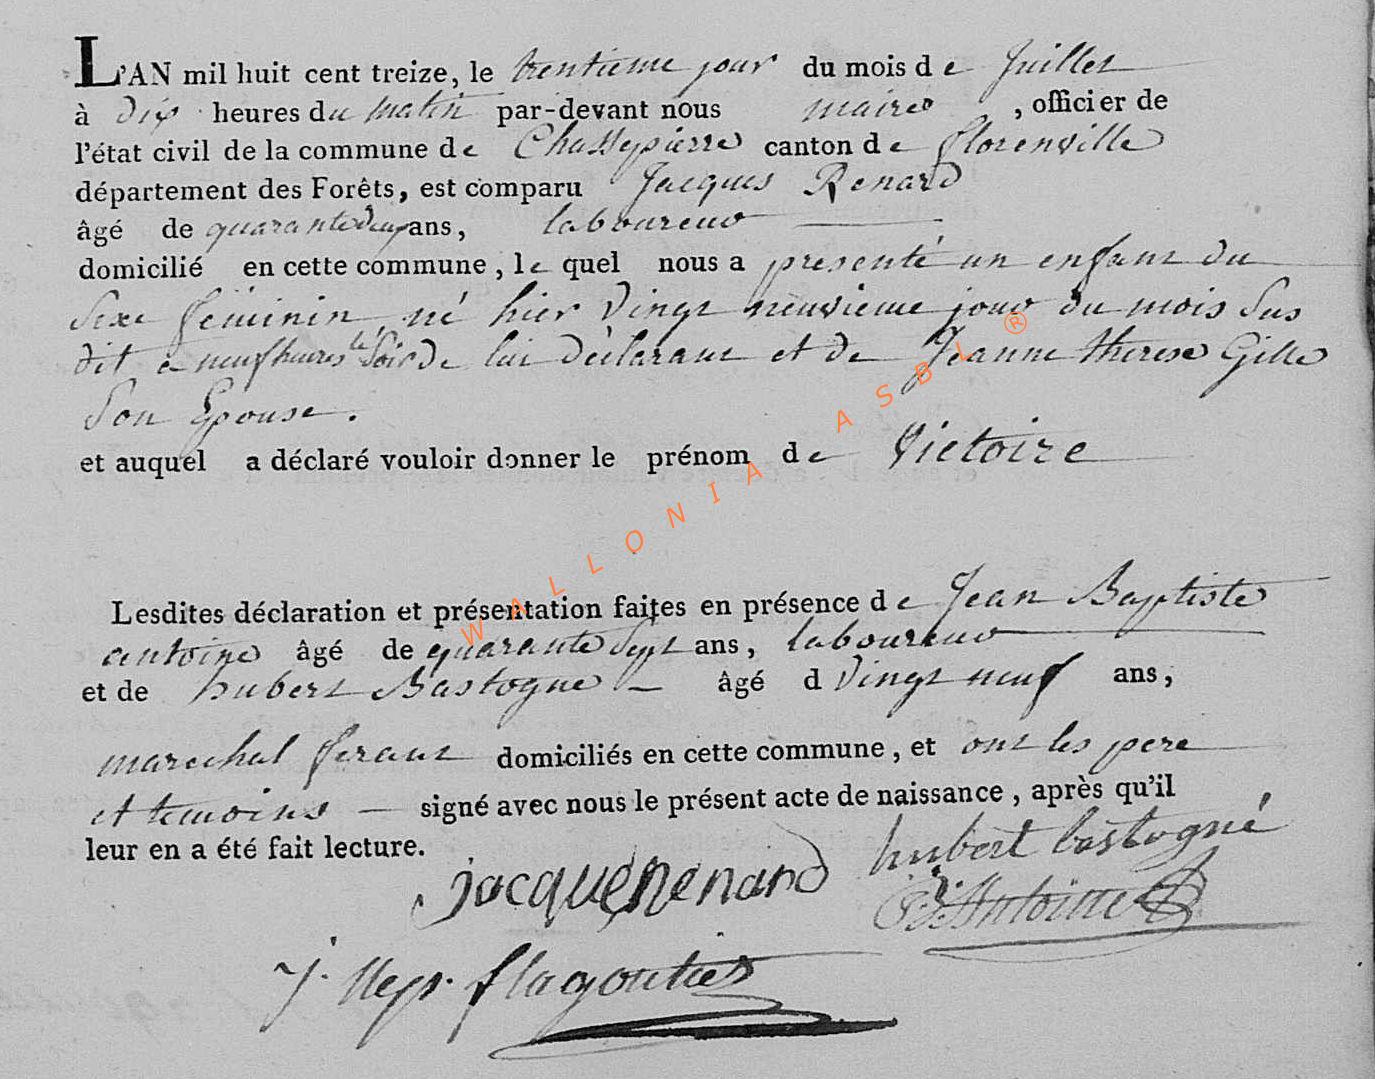 L'AN mil huit cent treize, le trentieme jour du mois de Juillet
à dix heures du matin par-devant nous maire , officier de
l'état civil de la commune de Chassepierre canton de florenville
département des Forêts, est comparu Jacques Renard
âgé de quarante deux ans, laboureur
domicilié en cette commune, le quel nous a presenté un enfant du
Sexe féminin né hier vingt neuvieme jour du mois Sus
dit a neuf heures le Soir de lui déclarant et de Jeanne therese Gille
Son Epouse.
et auquel a déclaré vouloir donner le prénom de Victoire
Lesdites déclaration et présentation faites en présence de Jean Baptiste
antoine âgé de quarante Sept ans, laboureur
et de hubert Bastogne âgé d vingt neuf ans,
marechal ferant domiciliés en cette commune, et ont les pere
et temoins signé avec nous le présent acte de naissance, après qu'il
leur en a été fait lecture.
hubert bastogné
jacque Renard
J. B. Antoine
J. Nep. flagoutier
WALLONIA ASBL ®